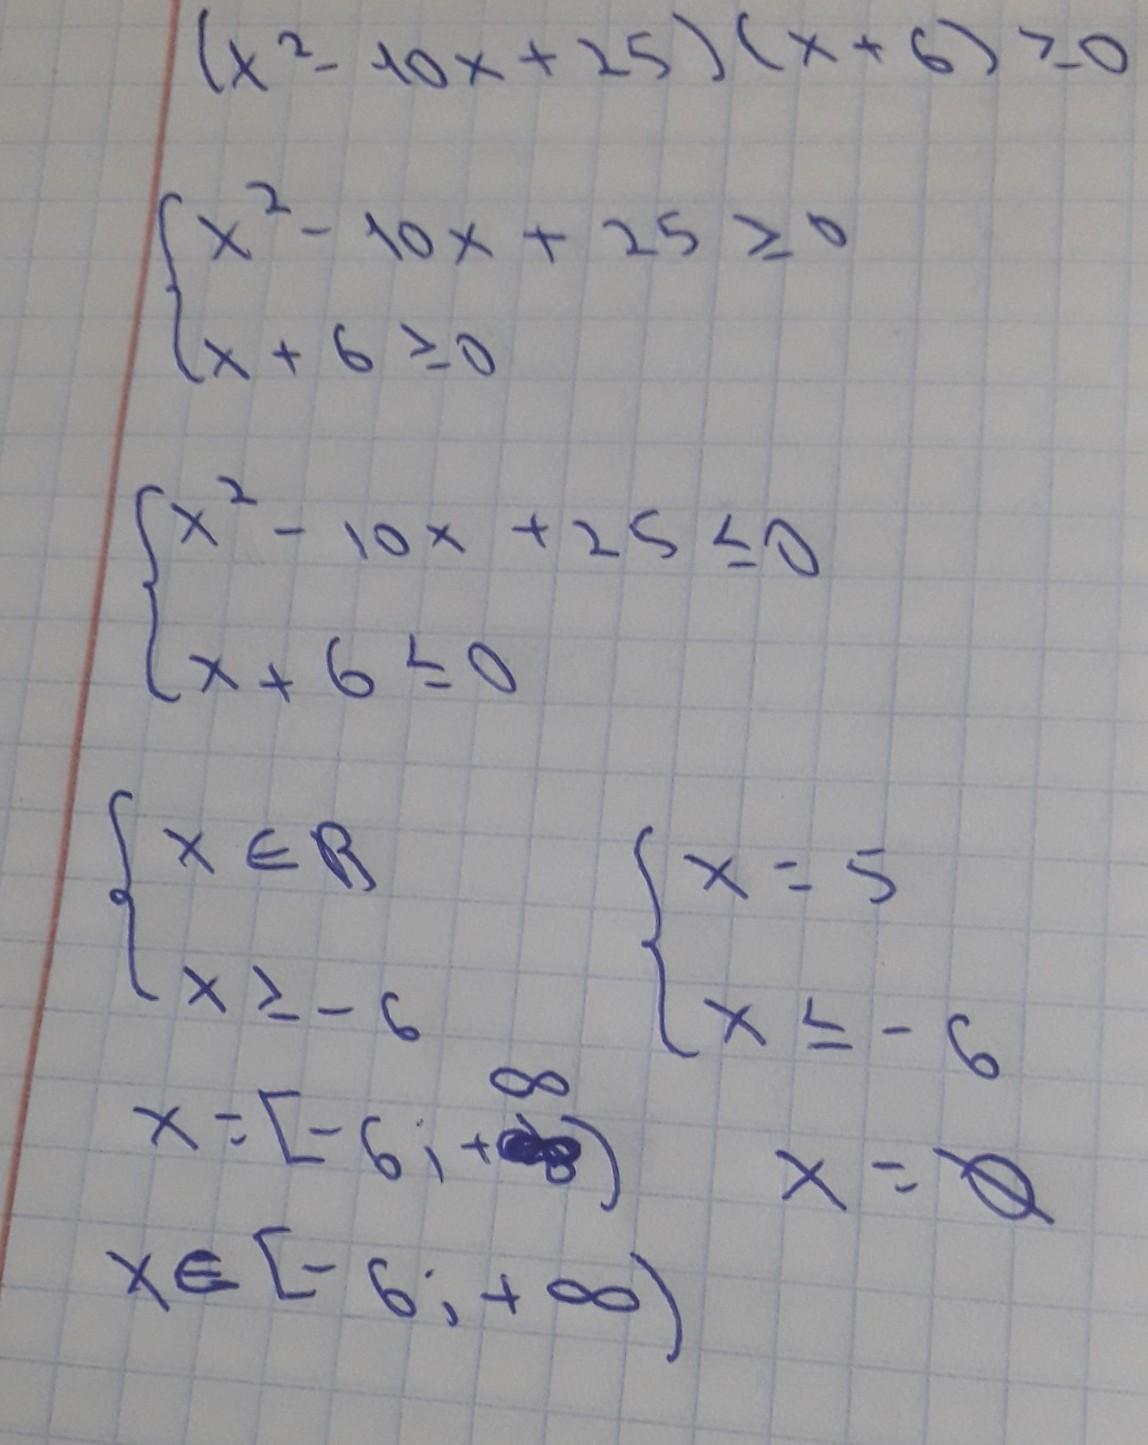 (x² - 10x + 25)(x + 6) ≥ 0
{ x² - 10x + 25 ≥ 0
x + 6 ≥ 0
{ x² - 10x + 25 ≤ 0
x + 6 ≤ 0
{ x ∈ R
x ≥ - 6
{ x = 5
x ≤ - 6
x = [- 6; + ∞)
x = ∅
x ∈ [- 6; + ∞)